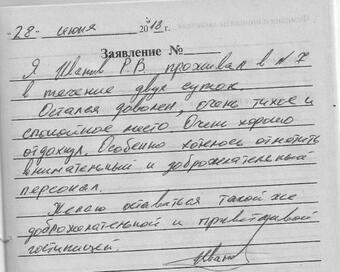 "28" июня 2018 г.
Заявление №
Я Иванов Р.В. проживал в №7
в течение двух суток.
Остался доволен, очень тихое и
спокойное место. Очень хорошо
отдохнул. Особенно хотелось отметить
внимательный и доброжелательный
персонал.
Желаю оставаться такой же
доброжелательной и приветливой
гостиницей.
Иванов